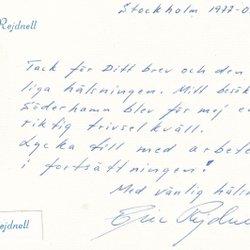 Rejdnell
Stockholm 1977-0
Tack för Ditt brev och den
liga hälsningen. Mitt besök
Söderhamn blev för mej e
riktig trivselkväll.
Lycka till med arbete
i fortsättningen!
Med vänlig häls
Eric Rejdne
Rejdnell